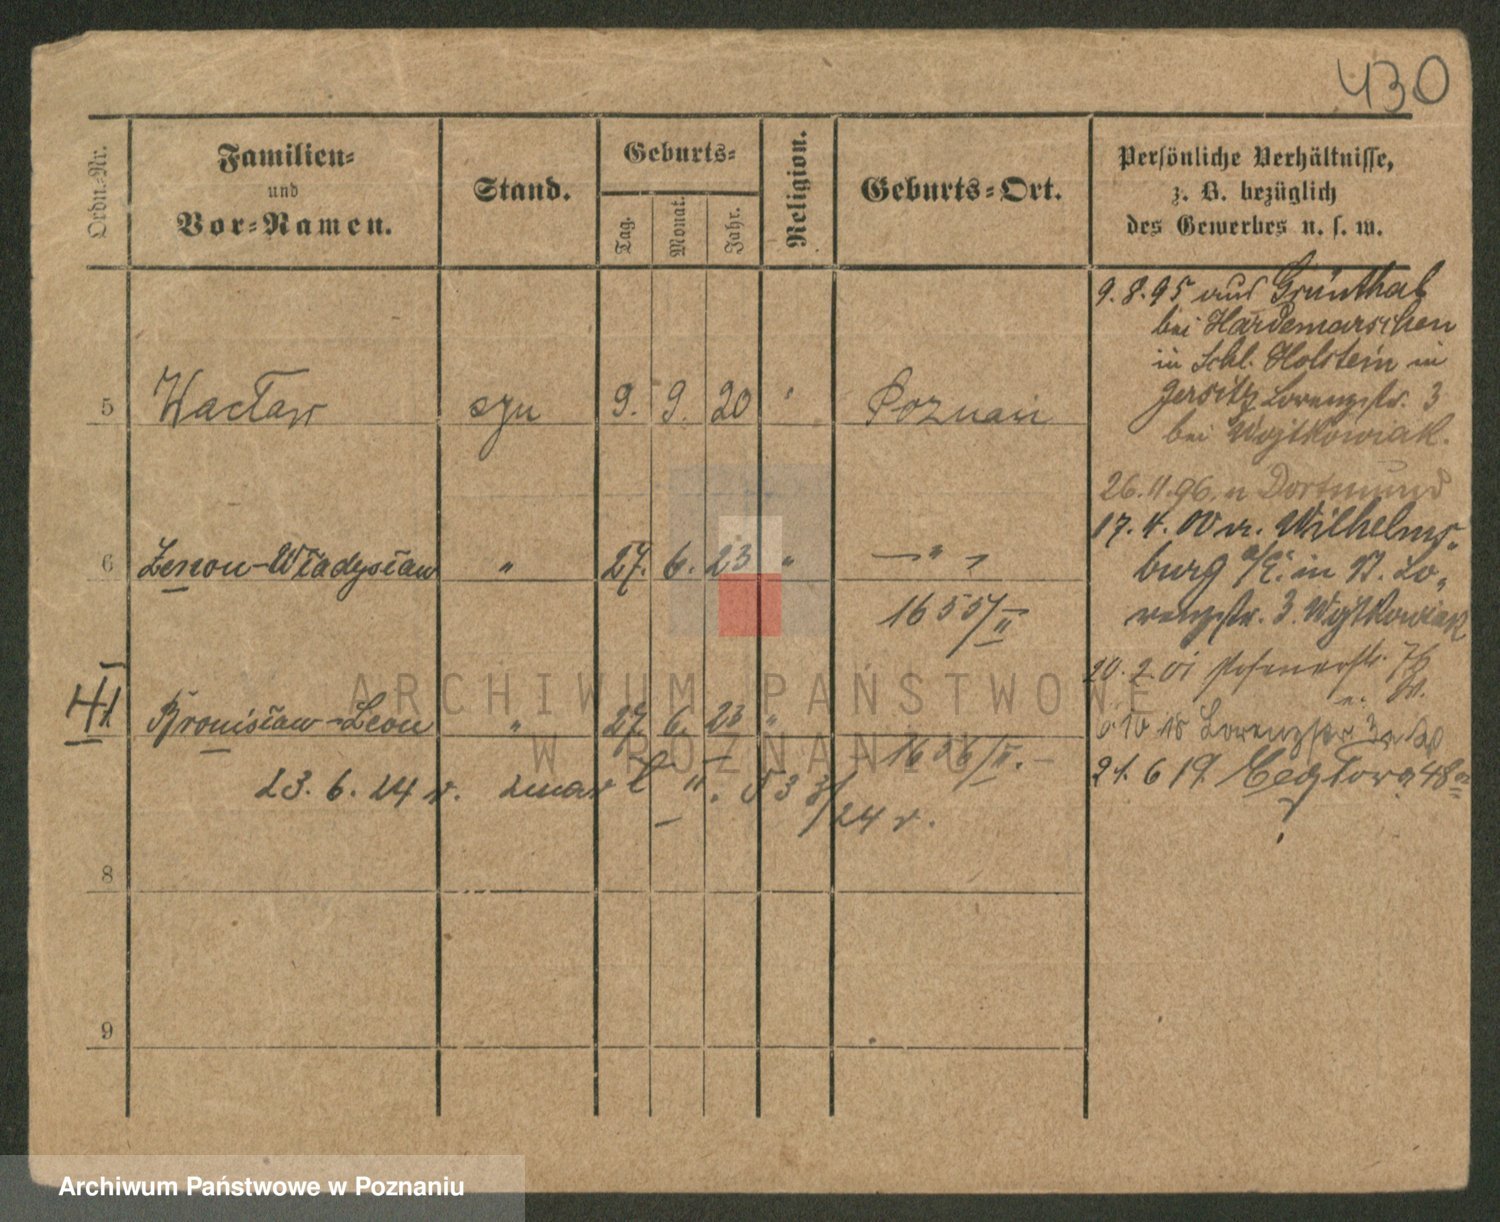 430
Ordn.-Nr.
Familien-
und
Vor-Namen.
Stand.
Geburts-
Tag.
Monat.
Jahr.
Religion.
Geburts-Ort.
Persönliche Verhältnisse,
z. B. bezüglich
des Gewerbes u. s. w.
9.8.95 aus Grünthal
bei Hademarschen
in Schl. Holstein in
Jersitz Lorenzstr. 3
bei Wojtkowiak.
5 Wacław syn 9. 9. 20 " Poznań
26.11.96. n Dortmund
17.4.00 v. Wilhelms-
burg a/E. in St. Lo-
renzstr. 3. Wojtkowiak
6 Zenon-Władysław " 27. 6. 23 " — " —
1655/II
20.2.01 Posenerstr.
III Bronisław-Leon " 27. 6. 23 "
1656/II.
6 10 18 Lorenzstr 3
21.6 19.
23. 6. 24 r. zmarł II. 533/24 r.
8
9
ARCHIWUM PAŃSTWOWE
W POZNANIU
Archiwum Państwowe w Poznaniu